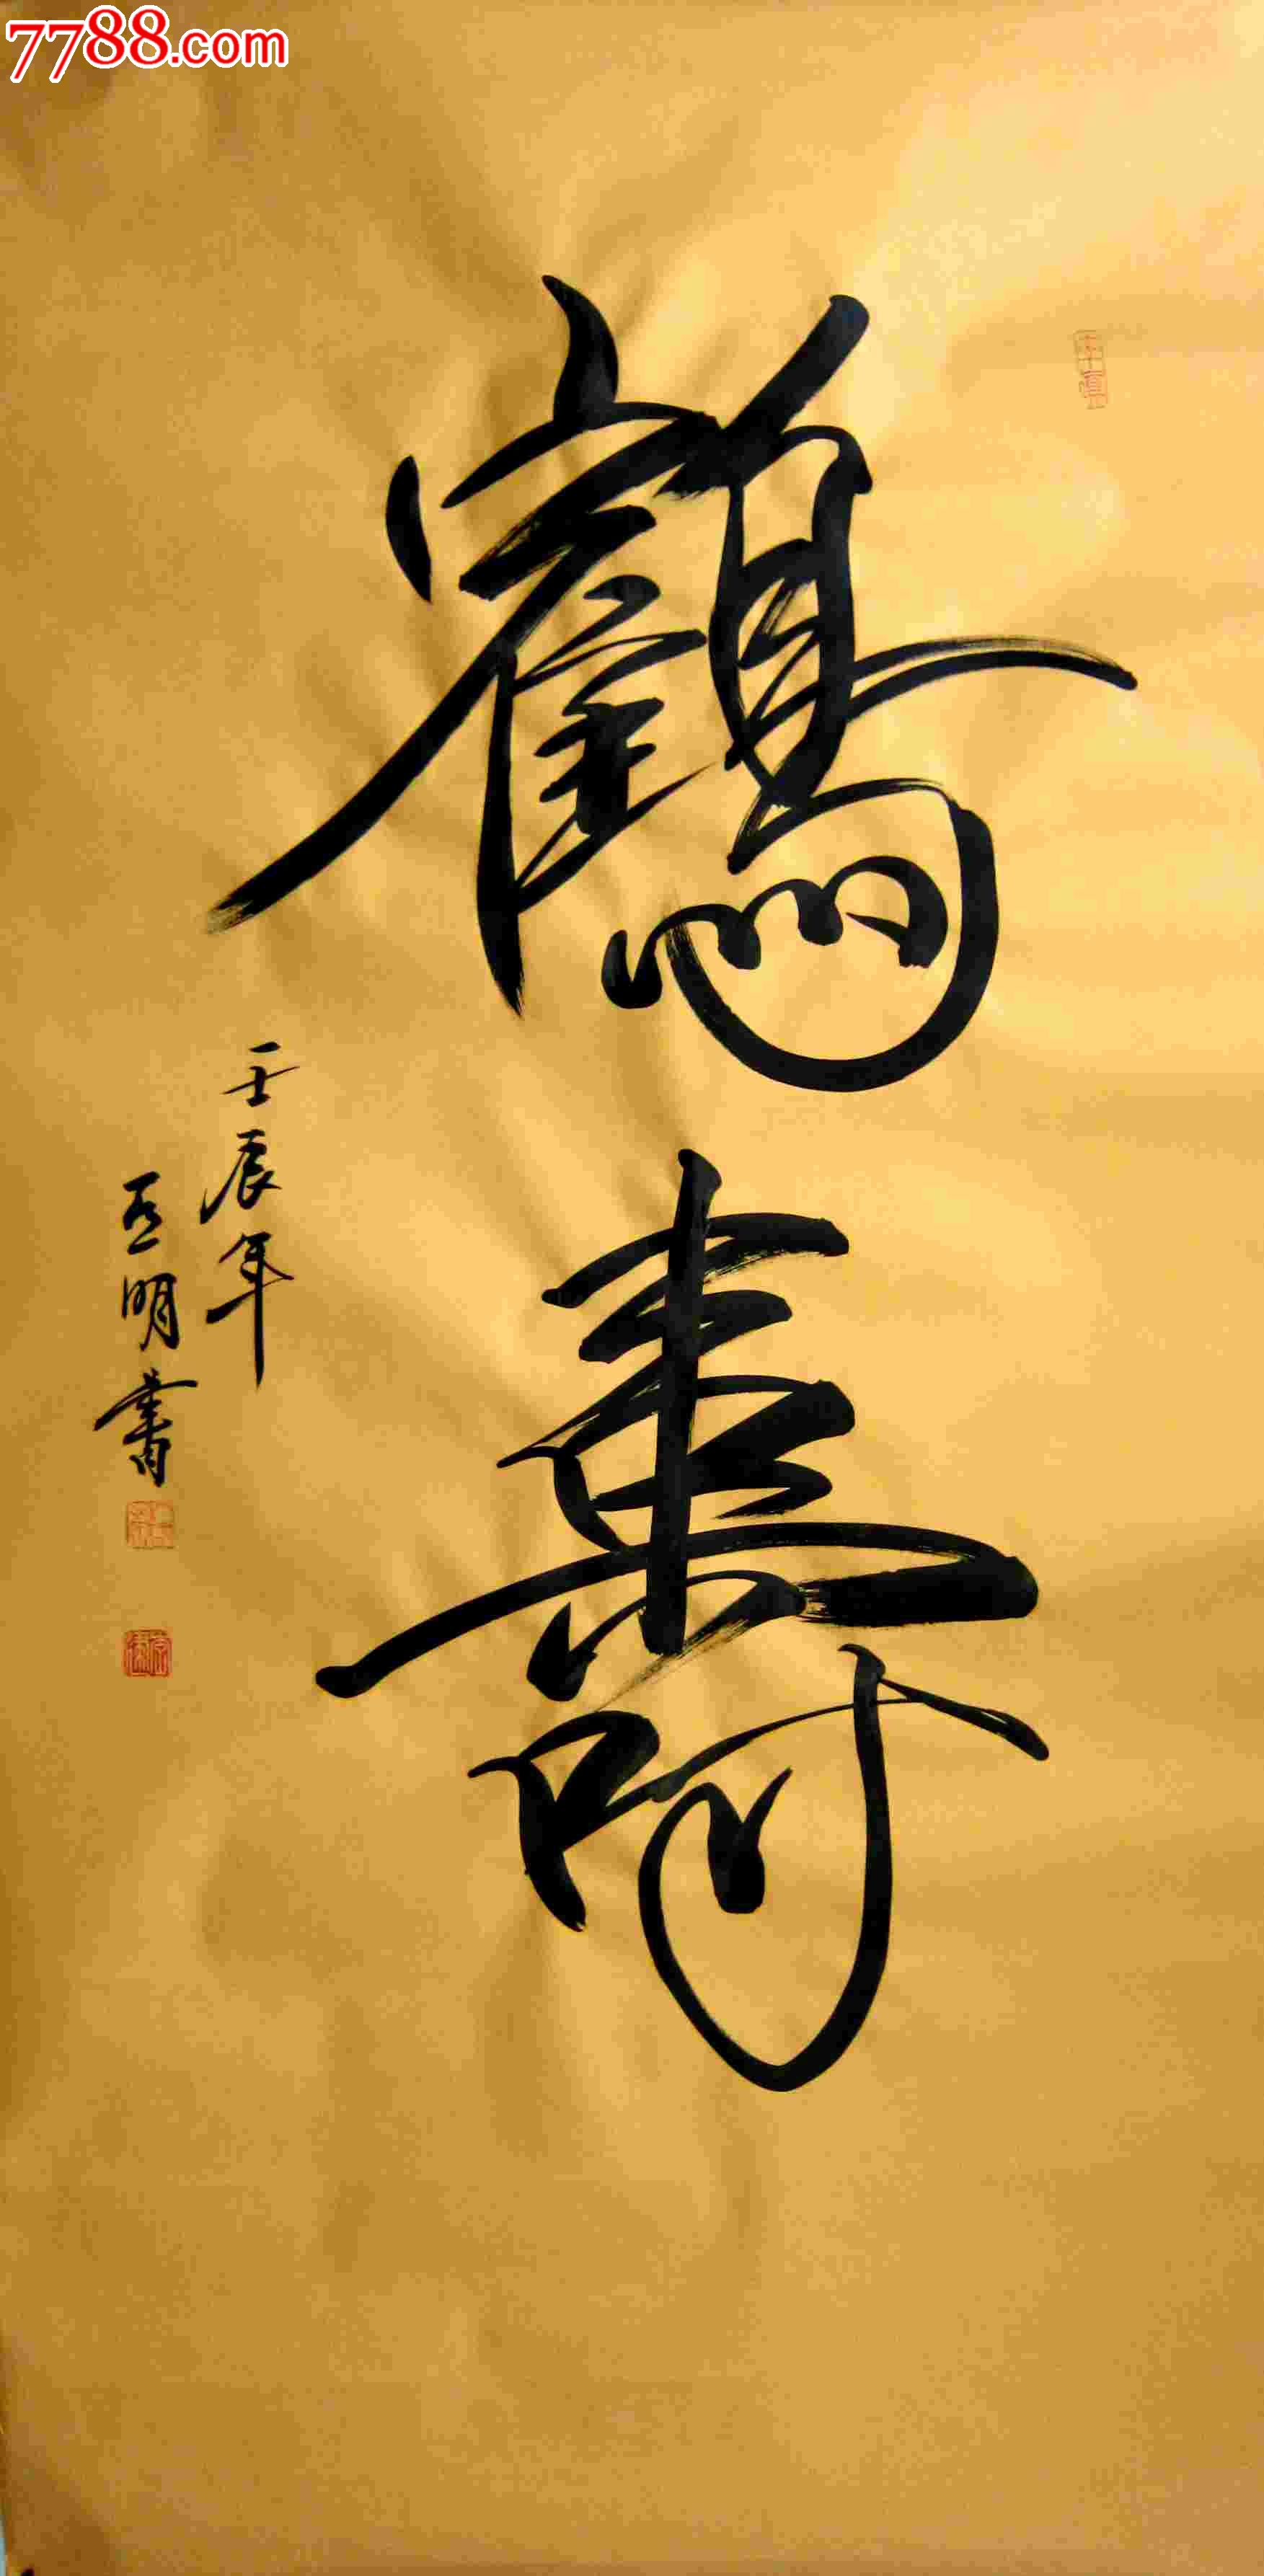 7788.com
鶴壽
壬辰年
亞明書